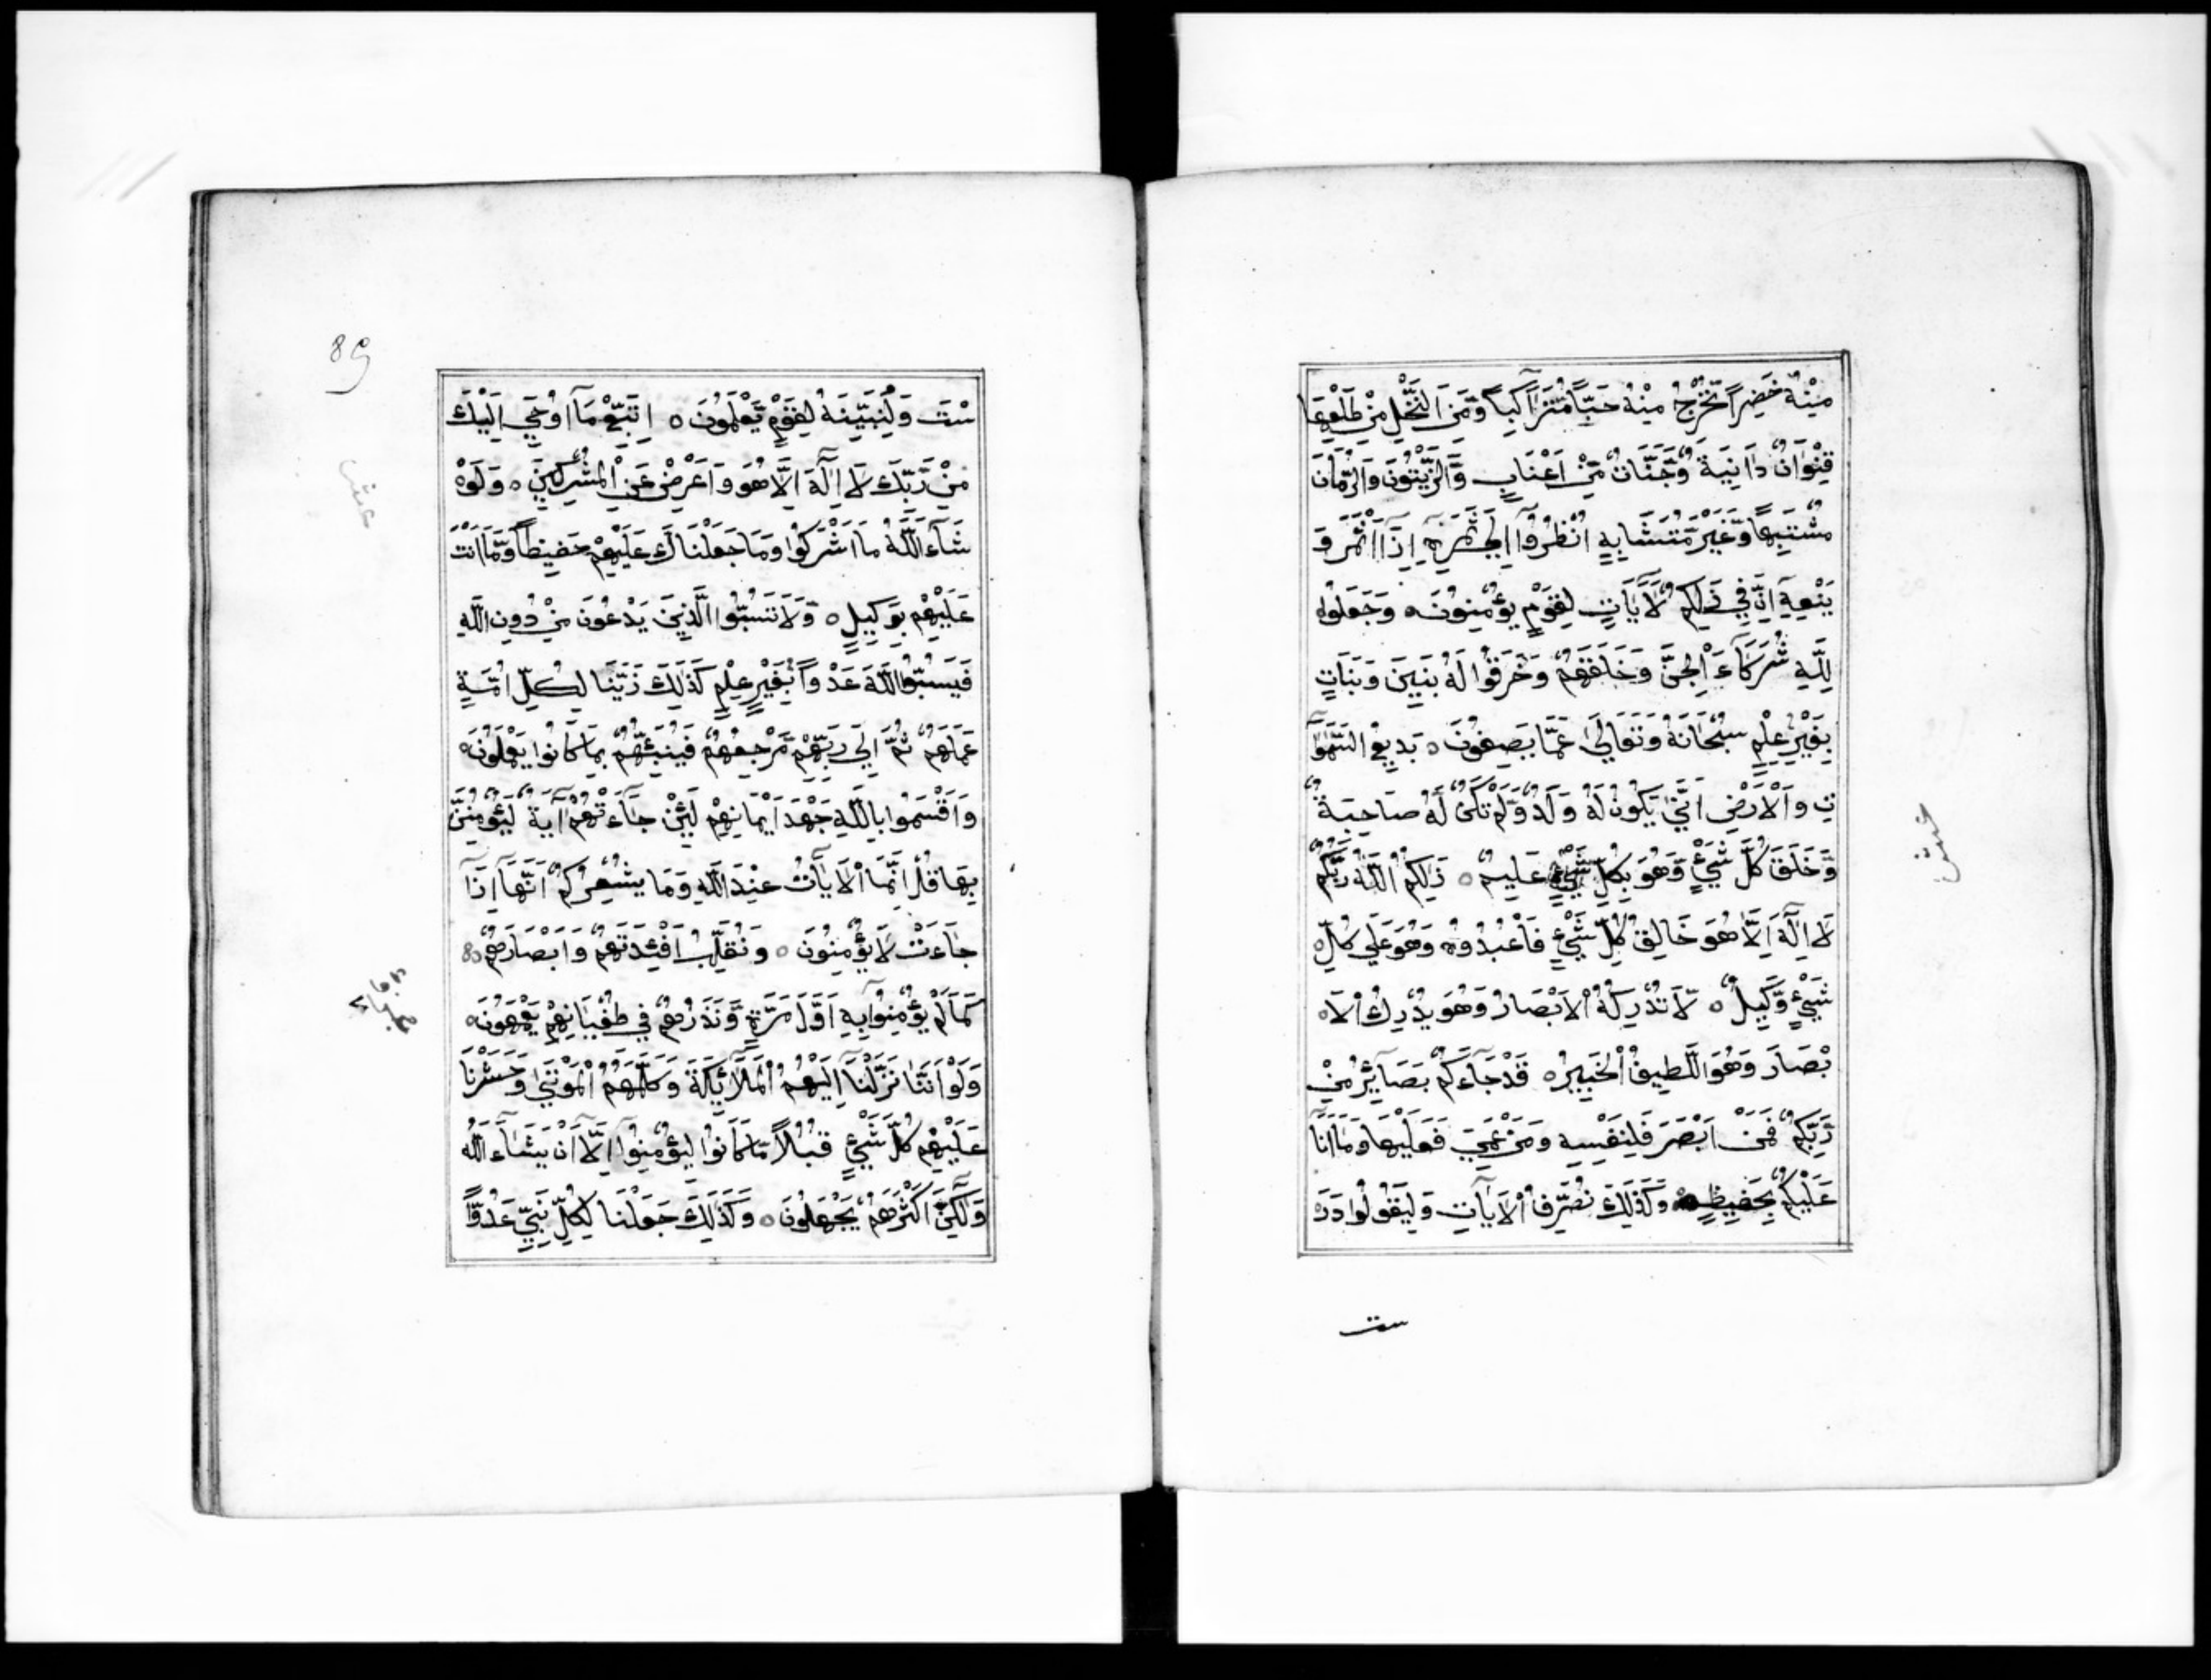 مِنْهُ خَضِراً نُخْرِجُ مِنْهُ حَبّاً مُتَرَاكِباً وَّمِنَ النَّخْلِ مِنْ طَلْعِهَا
قِنْوَانٌ دَانِيَةٌ وَّجَنَّاتٌ مِّنْ اَعْنَابٍ وَّالزَّيْتُونَ وَالرُّمَّانَ
مُشْتَبِهاً وَّغَيْرَ مُتَشَابِهٍ اُنْظُرُوا اِلَي ثَمَرِهٖ اِذَا اَثْمَرَ وَ
يَنْعِهٖ اِنَّ فِي ذَلِكُمْ لَاٰيَاتٍ لِقَوْمٍ يُؤْمِنُونَ ه وَجَعَلُوا
لِلّٰهِ شُرَكَاءَ الْجِنَّ وَخَلَقَهُمْ وَخَرَقُوا لَهُ بَنِينَ وَبَنَاتٍ
بِغَيْرِ عِلْمٍ سُبْحَانَهُ وَتَعَالَي عَمَّا يَصِفُونَ ه بَدِيعُ السَّمٰوَا
تِ وَالْاَرْضِ اَنّٰي يَكُونُ لَهُ وَلَدٌ وَّلَمْ تَكُنْ لَهُ صَاحِبَةٌ
وَّخَلَقَ كُلَّ شَيْءٍ وَّهُوَ بِكُلِّ شَيْءٍ عَلِيمٌ ه ذَلِكُمُ اللّٰهُ رَبُّكُمْ
لَا اِلٰهَ اِلَّا هُوَ خَالِقُ كُلِّ شَيْءٍ فَاعْبُدُوهُ وَهُوَ عَلَي كُلِّ
شَيْءٍ وَّكِيلٌ ه لَا تُدْرِكُهُ الْاَبْصَارُ وَهُوَ يُدْرِكُ الْاَ
بْصَارَ وَهُوَ اللَّطِيفُ الْخَبِيرُ ه قَدْ جَاءَكُمْ بَصَائِرُ مِنْ
رَّبِّكُمْ فَمَنْ اَبْصَرَ فَلِنَفْسِهٖ وَمَنْ عَمِيَ فَعَلَيْهَا وَمَا اَنَا
عَلَيْكُمْ بِحَفِيظٍ ه وَكَذٰلِكَ نُصَرِّفُ الْاٰيَاتِ وَلِيَقُولُوا دَرَ
ست
89
سْتَ وَلِنُبَيِّنَهُ لِقَوْمٍ يَّعْلَمُونَ ه اِتَّبِعْ مَا اُوحِيَ اِلَيْكَ
مِنْ رَّبِّكَ لَا اِلٰهَ اِلَّا هُوَ وَاَعْرِضْ عَنِ الْمُشْرِكِينَ ه وَلَوْ
شَاءَ اللّٰهُ مَا اَشْرَكُوا وَمَا جَعَلْنَاكَ عَلَيْهِمْ حَفِيظاً وَّمَا اَنْتَ
عَلَيْهِمْ بِوَكِيلٍ ه وَلَا تَسُبُّوا الَّذِينَ يَدْعُونَ مِنْ دُونِ اللّٰهِ
فَيَسُبُّوا اللّٰهَ عَدْواً بِغَيْرِ عِلْمٍ كَذٰلِكَ زَيَّنَّا لِكُلِّ اُمَّةٍ
عَمَلَهُمْ ثُمَّ اِلَي رَبِّهِمْ مَّرْجِعُهُمْ فَيُنَبِّئُهُمْ بِمَا كَانُوا يَعْمَلُونَ ه
وَاَقْسَمُوا بِاللّٰهِ جَهْدَ اَيْمَانِهِمْ لَئِنْ جَاءَتْهُمْ اٰيَةٌ لَّيُؤْمِنُنَّ
بِهَا قُلْ اِنَّمَا الْاٰيَاتُ عِنْدَ اللّٰهِ وَمَا يُشْعِرُكُمْ اَنَّهَا اِذَا
جَاءَتْ لَا يُؤْمِنُونَ ه وَنُقَلِّبُ اَفْئِدَتَهُمْ وَاَبْصَارَهُمْ
كَمَا لَمْ يُؤْمِنُوا بِهٖ اَوَّلَ مَرَّةٍ وَّنَذَرُهُمْ فِي طُغْيَانِهِمْ يَعْمَهُونَ ه
وَلَوْ اَنَّنَا نَزَّلْنَا اِلَيْهِمُ الْمَلَائِكَةَ وَكَلَّمَهُمُ الْمَوْتٰي وَحَشَرْنَا
عَلَيْهِمْ كُلَّ شَيْءٍ قُبُلاً مَّا كَانُوا لِيُؤْمِنُوا اِلَّا اَنْ يَّشَاءَ اللّٰهُ
وَلٰكِنَّ اَكْثَرَهُمْ يَجْهَلُونَ ه وَكَذٰلِكَ جَعَلْنَا لِكُلِّ نَبِيٍّ عَدُوّاً